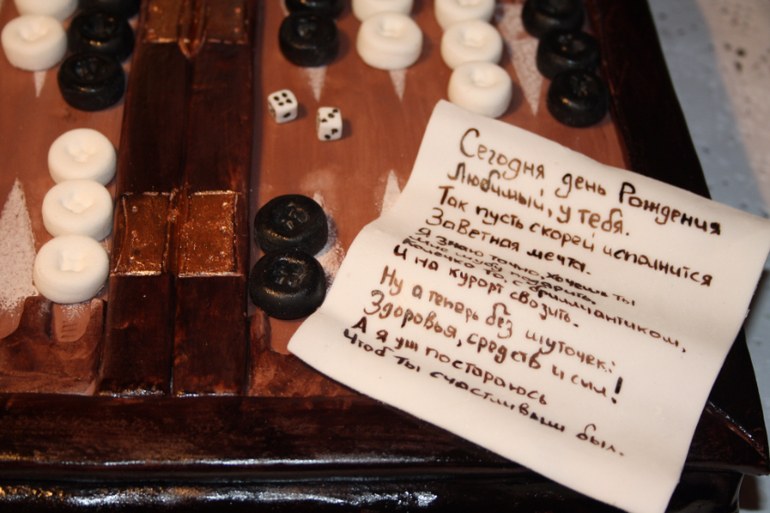 Сегодня день Рождения
Любимый, у тебя.
Так пусть скорей исполнится
Заветная мечта.
Я знаю точно хочешь ты
Мне шубу подарить,
Колечко то, с бриллиантиком,
И на курорт свозить.
Ну а теперь без шуточек:
Здоровья, средств и сил!
А я уж постараюсь
Чтоб ты счастливым был.